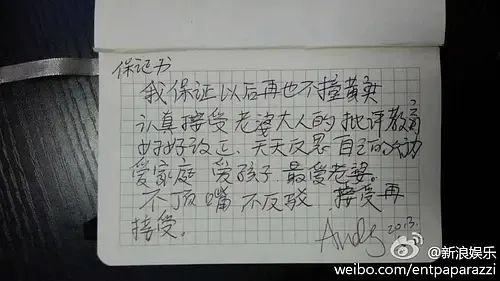 保证书
我保证以后再也不撞黄奕
认真接受老婆大人的批评教育
好改正、天天反思自己的
爱家庭 爱孩子 最爱老婆。
不顶嘴 不反驳 接受再
接受。
Andy 2013.
@新浪娱乐
weibo.com/entpaparazzi